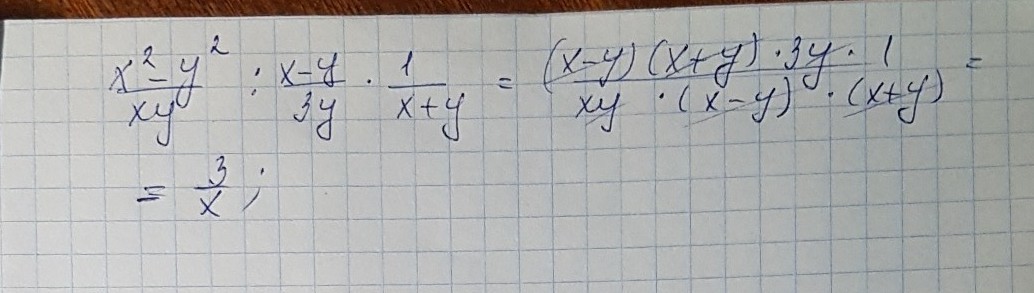 (x² - y²)/(xy) : (x-y)/(3y) · 1/(x+y) = ((x-y)(x+y) · 3y · 1)/(xy · (x-y) · (x+y)) =
= 3/x ;